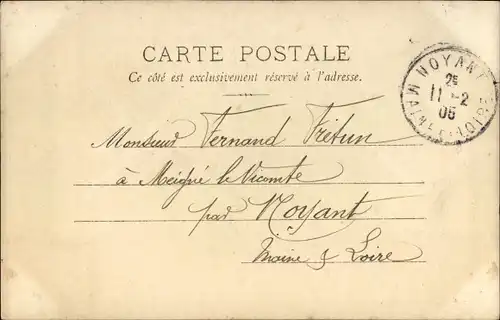 CARTE POSTALE
Ce côté est exclusivement réservé à l'adresse.
NOYANT
25
11 -2
05
MAINE-ET-LOIRE
Monsieur Fernand Frétun
à Meigné le Vicomte
par Noyant
Maine & Loire